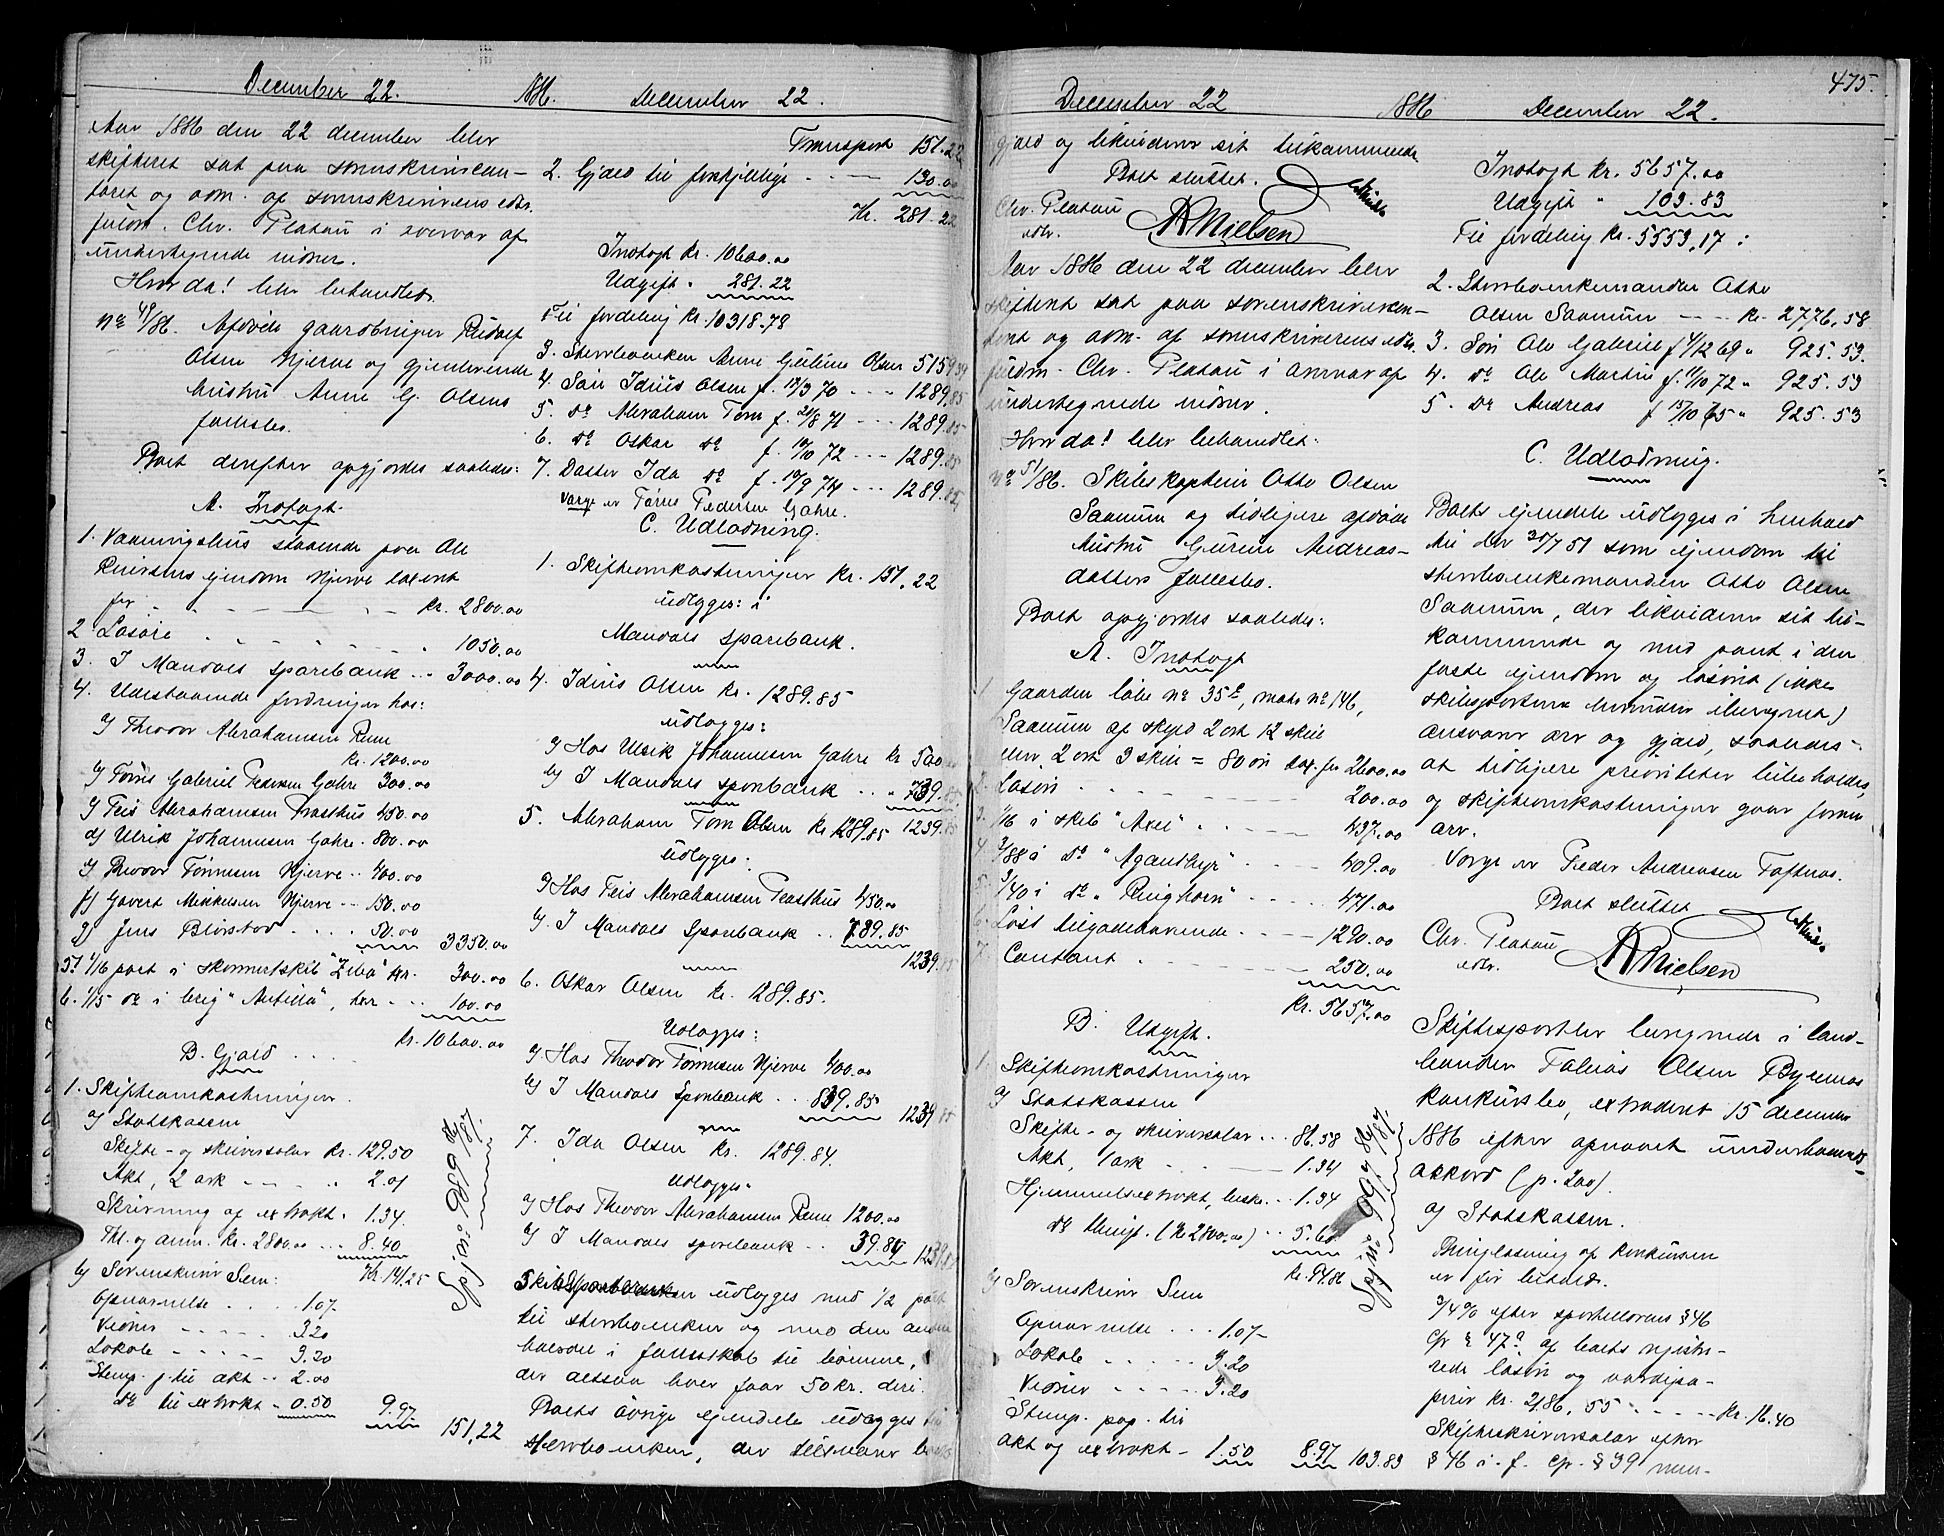 December 22.
1886.
Aar 1886 den 22 december blev
skifteret sat paa sorenskrivercon-
toret og adm. af sorenskriverens edsv.
fuldm. Chr. Platou i overvær af
undertegnede vidner.
Hvor da! blev behandlet:
No 49/86. Afdøde gaardbruger Rudolf
Olsen Hjerve og gjenlevende
hustru Anne G. Olsens
fællesbo.
Boet derefter opgjordes saaledes:
A. Indtægt.
1. Vaaningshus staaende paa Ole
Reiersens eiendom Hjerve taxeret
for - - - kr. 2800.00
2 Løsøre . . . 1050.00
3. I Mandals Sparebank .. 3000.00
4. Udestaaende fordringer hos:
a) Theodor Abrahamsen Reme
kr. 1200.00
b) Tørris Gabriel Pedersen Gahre 300.00
c) Teis Abrahamsen Trasthus 450.00
d) Ulrik Johannesen Gahre . 800.00
e) Theodor Tønnesen Hjerve .. 400.00
f) Govert Mikkelsen Hjerve .. 150.00
g) Jens Bierstad . . . . 50.00 3350.00
5. 1/16 part i skonnertskib "Ziba" kr. 300.00
6. 1/15 do i brig "Antilla", her . . 100.00
kr. 10600.00
B. Gjæld . . . .
1. Skifteomkostninger.
a) Statskassen
Skifte- og skriversalær kr. 129.50
Akt, 2 ark - - . . 2.01
Skrivning af extrakt . 1.34
Thl. og anm. kr. 2800.00 ... 8.40
b) Sorenskriver Sem: Kr. 141.25
Opnævnelse . . . . 1.07
Vidner - - - - - 3.20
Lokale - - - - - 3.20
Stemp. p. til akt .. 2.00
do til extrakt - 0.50 9.97
151,22
December 22.
Transport 151.22
2. Gjæld til forskjellige . - - - 130.00
Kr. 281.22
Indtægt kr. 10600.00
Udgift " 281.22
Til fordeling kr. 10318.78
3. Stervboenken Anne Guline Olsen 5159.39
4. Søn Idius Olsen f. 18/3 70 - - - 1289.85
5. do Abraham Tom f. 21/8 71 - - - 1289.85
6. do Oskar do f. 19/10 72 - - - 1289.85
7. Datter Ida do f. 19/9 74 - - - 1289.84
Værge er Tørres Pedersen Gahre.
C. Udlodning.
1. Skifteomkostninger kr. 151,22
udlægges: i
Mandals sparebank.
4. Idius Olsen kr. 1289.85
udlægges:
a) Hos Ulrik Johannesen Gahre kr 500.00
b) I Mandals sparebank . . " 739.85
1239.85
5. Abraham Tom Olsen kr 1289.85
udlægges:
a) Hos Teis Abrahamsen Trasthus 450.00
b) I Mandals Sparebank . . 789.85
1239.85
6. Oskar Olsen kr. 1289.85.
Udlægges:
a) Hos Theodor Tønnesen Hjerve 400.00
b) I Mandals Sparebank . . . 839.85 1239.85
7. Ida Olsen kr. 1289.84.
Udlægges.
a) Hos Theodor Abrahamsen Reme 1200.00
b) I Mandals sparebank . . 39.84 1239.84
Skibsparterne udlægges med 1/2 part
til stervboenken og med den anden
halvdel i fællesskab til børnene,
der altsaa hver faar 50 kr. deri.
Boets øvrige eiendele udlægges til
stervboenken, der tilsvarer boets
December 22
1886
gjæld og likviderer sit tilkommende
Boet sluttet.
Chr. Platou
edsv.
A Nielsen
Aar 1886 den 22 december blev
skifteret sat paa sorenskrivercon-
toret og adm. af sorenskriverens edsv.
fuldm. Chr. Platou i overvær af
undertegnede vidner.
Hvor da! blev behandlet:
No 51/86. Skibskaptein Otto Olsen
Saanum og tidligere afdøde
hustru Gurine Andreas-
datters fællesbo.
Boet opgjordes saaledes:
A. Indtægt
1. Gaarden løbe no 35 b, matr. no 146,
Saanum af skyld 2 ort 12 skill
rev. 2 ort 3 skill = 80 øre tax. for 2600.00
2. Løsøre . - - - - 200.00
3. 1/16 i skib "Axel" . - - - - 437.00
4. 3/88 i do "Aganthyr" - - - - 409.00
5. 3/40 i do "Ringhorn" . - - - 471.00
6. Løst tilgodehavende . - - - 1290.00
7. Contant . - - - - 250.00
Kr. 5657.00
B. Udgift.
1. Skifteomkostninger
a) Statskassen
Skifte- og skriversalær . . . 86.58
Akt, 1 ark - - . - - 1.34
Hjemmelsextrakt, besk. . . . 1.34
do thingl. (kr 2800.00) . . 5.60
Kr. 94.86
b) Sorenskriver Sem
Opnævnelse . . . 1.07
Lokale . . . . . 3.20
Vidner . . . . . 3.20
Stemp. pap. til
akt og extrakt - 1.50 8.97 103.83
December 22.
475.
Indtægt kr. 5657.00
Udgift " 103.83
Til fordeling kr. 5553,17:
2. Stervboenkemanden Otto
Olsen Saanum - - - kr. 2776.58
3. Søn Ole Gabriel f 4/12 69 " 925.53.
4. do Ole Martin f. 11/10 72 " 925.53
5. do Andreas f 15/10 75 " 925.53
C. Udlodning.
Boets eiendele udlægges i henhold
til lov 31/7 51 som eiendom til
stervboenkemanden Otto Olsen
Saanum, der likviderer sit til-
kommende og med pant i den
faste eiendom og løsøret (ikke
skibsparterne herunder iberegnet)
ansvarer arv og gjæld, saaledes
at tidligere prioriteter bibeholdes,
og skifteomkostninger gaar foran
arv.
Værge er Peder Andreasen Toftenæs.
Boet sluttet
Chr. Platou
edsv.
A Nielsen
Skiftesportler beregnede i land-
handler Tobias Olsen Byremos
konkursbo, extraderet 15 december
1886 efter opnaaet underhaands-
akkord (p. 200).
a) Statskassen.
Thinglæsning af konkursen
er før betalt.
3/4 % efter sportellovens § 46
cfr § 47 a af boets registre-
rede løsøre og værdipa-
pirer kr. 2186,55 - - - - kr. 16.40
Skifteskriversalær efter
§ 46 i. f. cfr. § 39 num-